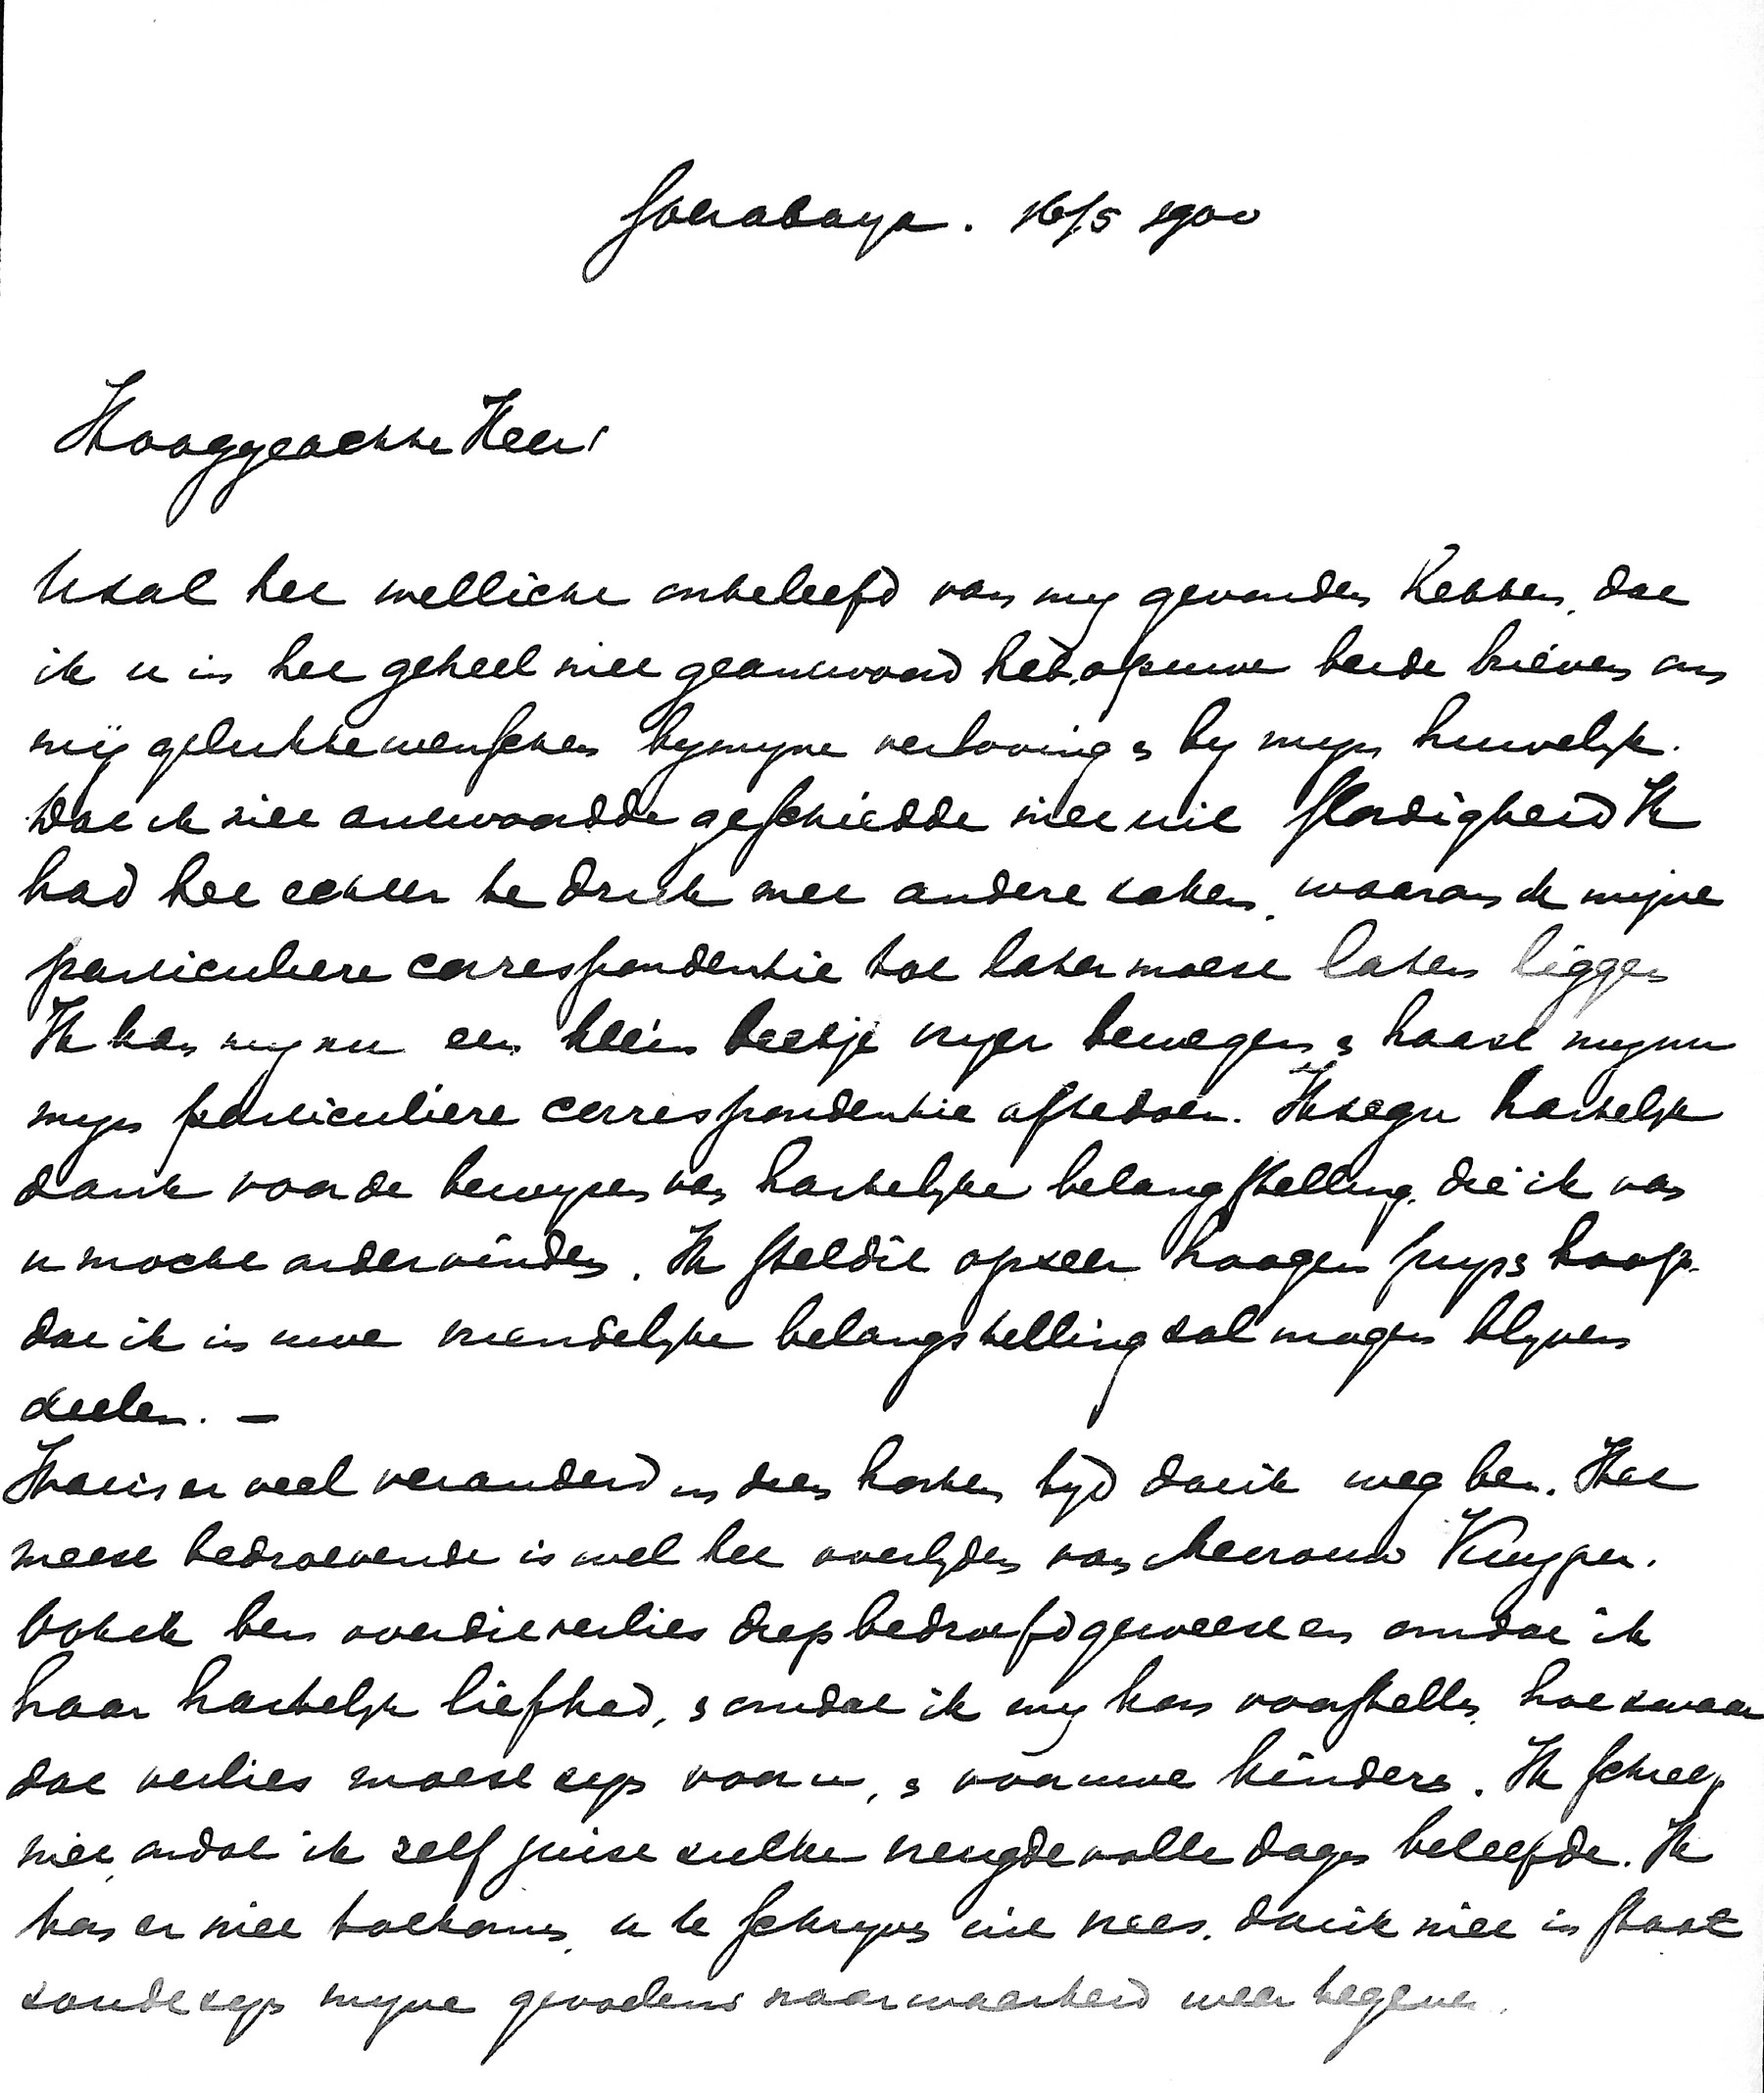 Soerabaya. 16/5 1900
Hooggeachte Heer!
U zal het wellicht onbeleefd van mij gevonden hebben, dat
ik u in het geheel niet geantwoord heb, op uwe beide brieven om
mij geluk te wenschen bij mijne verloving & bij mijn huwelijk.
Dat ik niet antwoordde geschiedde niet uit slordigheid Ik
had het echter te druk met andere zaken, waarom ik mijne
particuliere correspondentie tot later moest laten liggen
Ik kan mij nu een klein beetje vrijer bewegen & haast mij nu
mijn particuliere correspondentie af te doen. Ik zeg u hartelijk
dank voor de bewijzen van hartelijke belangstelling, die ik van
u mocht ondervinden. Ik stel dit op zeer hoogen prijs & hoop
dat ik in uwe vriendelijke belangstelling zal mogen blijven
deelen. —
Wat is er veel veranderd in dien korten tijd dat ik weg ben. Het
meest bedroevende is wel het overlijden van Mevrouw Kuyper.
Ook ik ben over dit verlies diep bedroefd geweest en omdat ik
haar hartelijk liefhad, & omdat ik mij kan voorstellen, hoe zwaar
dat verlies moest zijn voor u, & voor uwe kinders. Ik schreef
niet, omdat ik zelf juist zulke vreugdevolle dagen beleefde. Ik
kon er niet toe komen, u te schrijven uit vrees, dat ik niet in staat
zoude zijn mijne gevoelens naar waarheid weer te geven.